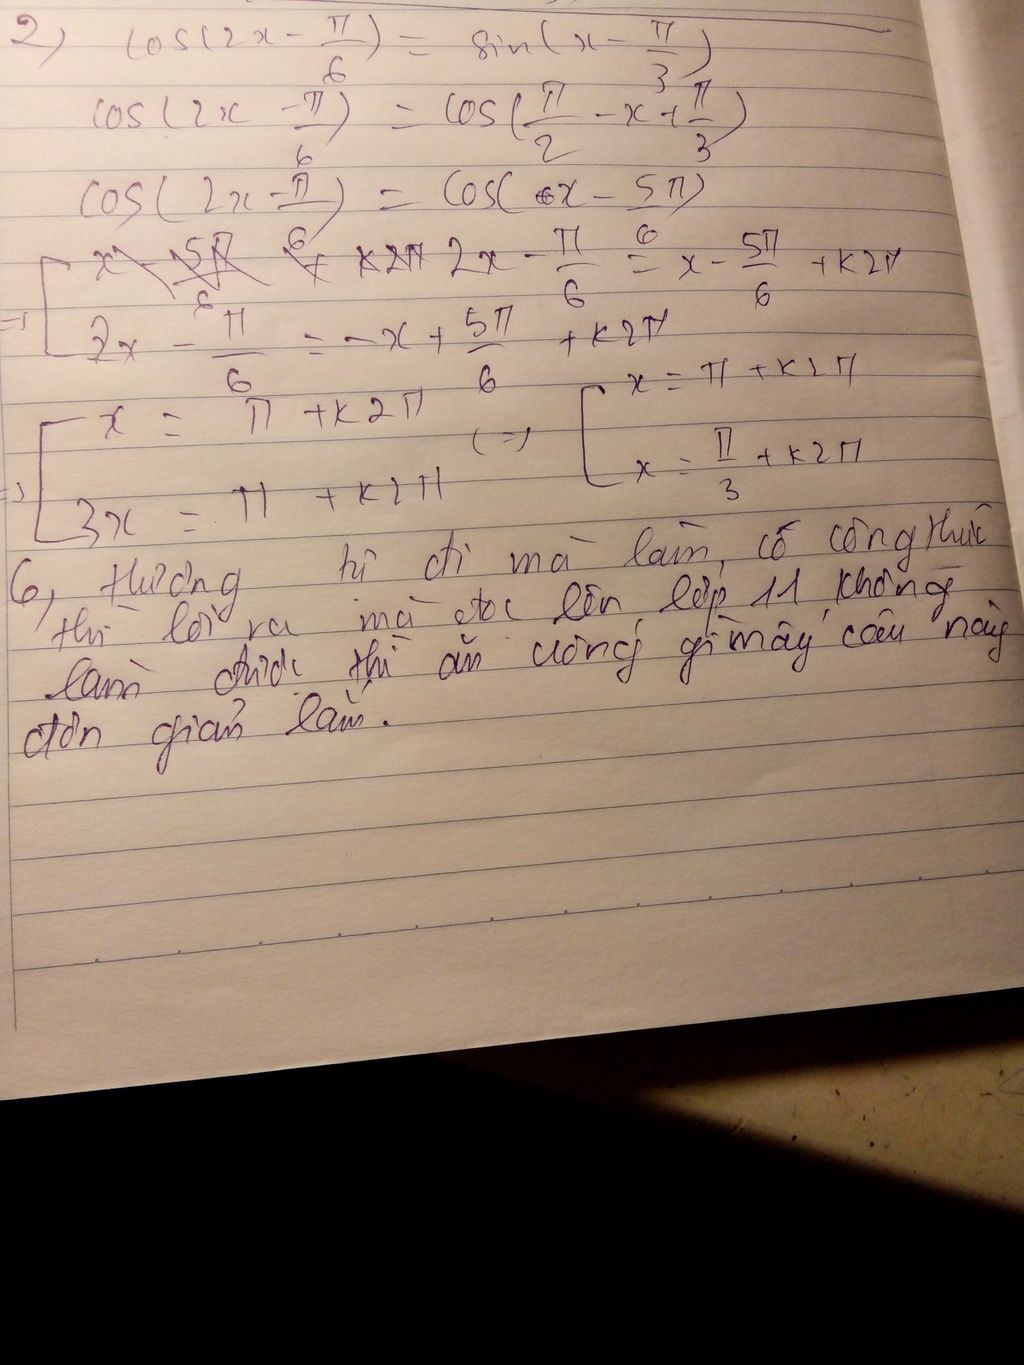 2) cos(2x - π/6) = sin(x - π/3)
cos(2x - π/6) = cos(π/2 - x + π/3)
cos(2x - π/6) = cos(x - 5π/6)
=> [ x - 5π/6 + k2π 2x - π/6 = x - 5π/6 + k2π
2x - π/6 = -x + 5π/6 + k2π
=> [ x = π + k2π (=) [ x = π + k2π
3x = π + k2π x = π/3 + k2π
6, tương tự đi mà làm, có công thức
thì lôi ra mà đọc lên lớp 11 không
làm được thì ăn uống gì mấy câu này
đơn giản lắm.